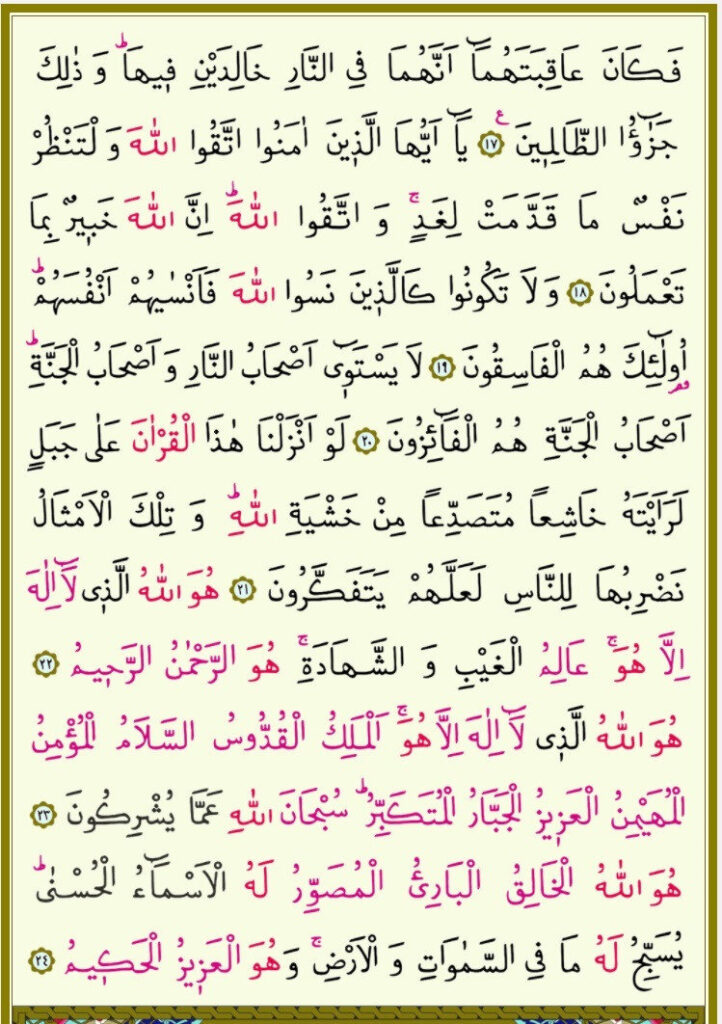 فَكَانَ عَاقِبَتَهُمَٓا اَنَّهُمَا فِي النَّارِ خَالِدَيْنِ ف۪يهَاۜ وَ ذٰلِكَ
جَزٰٓؤُا الظَّالِم۪ينَ ﴿١٧﴾ يَٓا اَيُّهَا الَّذ۪ينَ اٰمَنُوا اتَّقُوا اللّٰهَ وَ لْتَنْظُرْ
نَفْسٌ مَا قَدَّمَتْ لِغَدٍۚ وَ اتَّقُوا اللّٰهَؕ اِنَّ اللّٰهَ خَب۪يرٌ بِمَا
تَعْمَلُونَ ﴿١٨﴾ وَ لَا تَكُونُوا كَالَّذ۪ينَ نَسُوا اللّٰهَ فَاَنْسٰيهُمْ اَنْفُسَهُمْؕ
اُولٰٓئِكَ هُمُ الْفَاسِقُونَ ﴿١٩﴾ لَا يَسْتَو۪ٓى اَصْحَابُ النَّارِ وَ اَصْحَابُ الْجَنَّةِؕ
اَصْحَابُ الْجَنَّةِ هُمُ الْفَٓائِزُونَ ﴿٢٠﴾ لَوْ اَنْزَلْنَا هٰذَا الْقُرْاٰنَ عَلٰى جَبَلٍ
لَرَاَيْتَهُ خَاشِعاً مُتَصَدِّعاً مِنْ خَشْيَةِ اللّٰهِؕ وَ تِلْكَ الْاَمْثَالُ
نَضْرِبُهَا لِلنَّاسِ لَعَلَّهُمْ يَتَفَكَّرُونَ ﴿٢١﴾ هُوَ اللّٰهُ الَّذ۪ى لَٓا اِلٰهَ
اِلَّا هُوَۚ عَالِمُ الْغَيْبِ وَ الشَّهَادَةِۚ هُوَ الرَّحْمٰنُ الرَّح۪يمُ ﴿٢٢﴾
هُوَ اللّٰهُ الَّذ۪ى لَٓا اِلٰهَ اِلَّا هُوَۚ اَلْمَلِكُ الْقُدُّوسُ السَّلَامُ الْمُؤْمِنُ
الْمُهَيْمِنُ الْعَز۪يزُ الْجَبَّارُ الْمُتَكَبِّرُؕ سُبْحَانَ اللّٰهِ عَمَّا يُشْرِكُونَ ﴿٢٣﴾
هُوَ اللّٰهُ الْخَالِقُ الْبَارِئُ الْمُصَوِّرُ لَهُ الْاَسْمَٓاءُ الْحُسْنٰىؕ
يُسَبِّحُ لَهُ مَا فِي السَّمٰوَاتِ وَ الْاَرْضِۚ وَ هُوَ الْعَز۪يزُ الْحَك۪يمُ ﴿٢٤﴾